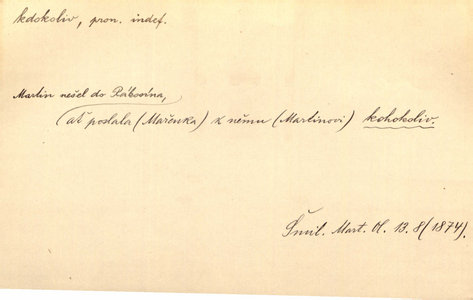 kdokoliv, pron. indef.
Martin nešel do Rábovína,
ať poslala (Mařenka) k němu (Martinovi) kohokoliv.
Šmil. Mart. Ol. 13. 8 (1874).